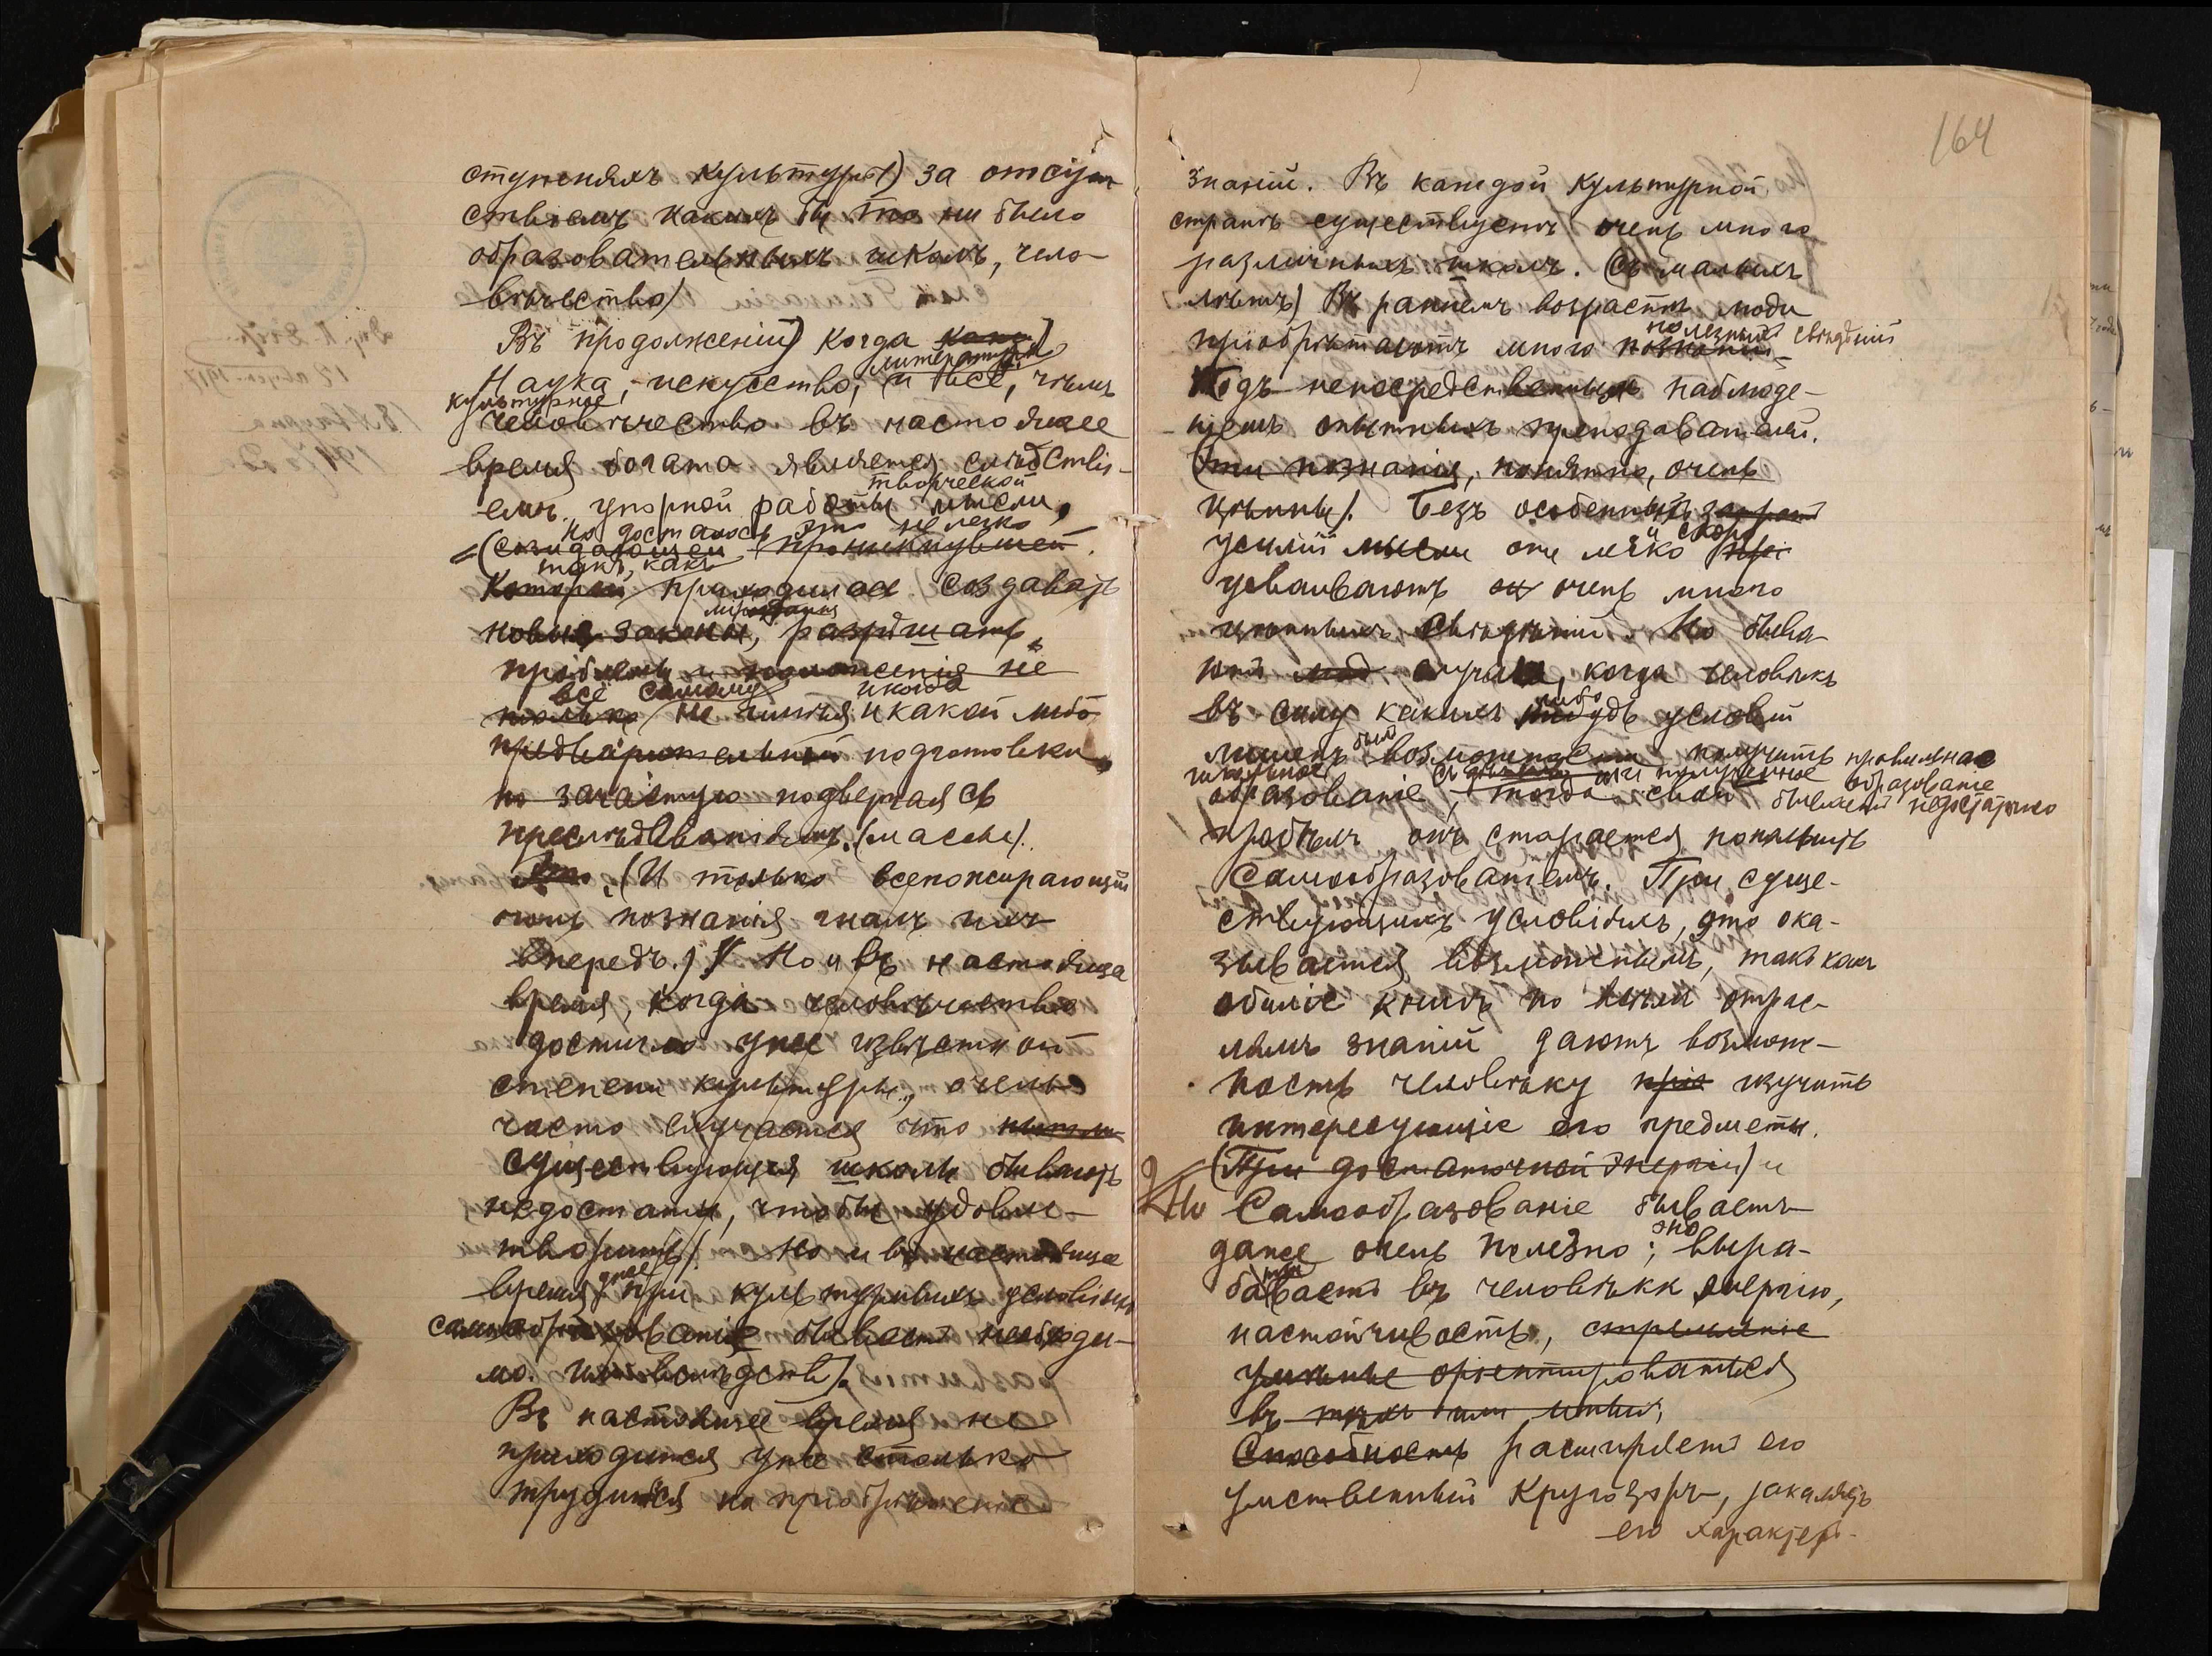 ступеняхъ культуры) за отсут
ствіемъ какихъ бы то ни было
образовательныхъ школъ, чело-
вѣчество)
Въ продолженіи) когда
литературы
Наука, искусство, и все, чѣмъ
культурное
человѣчество въ настоящее
время богато является слѣдстві-
творческой
емъ упорной работы мысли,
но досталось это не легко
(созидающей проникнувшей
такъ, какъ
Которой приходилось создавать
новые законы, разрѣшать
проблемы и положенія не
все самому никогда
только не имѣя никакой либо
предварительной подготовки
но зачастую подвергаясь
преслѣдованіямъ (массы).
(И только всепожирающій
огонь познанія гналъ ихъ
впередъ.) Но и въ настояще
время, когда человѣчество
достигло уже извѣстной
степени культуры, очень
часто случается что
существующія школы бываютъ
недостаточны, чтобы удовле-
творить). Но и въ настояще
уже
время при культурныхъ условіяхъ
самообразованіе бываетъ необходи-
мо.
Въ настоящее время не
приходится уже столько
трудиться на пріобрѣтеніе
164
знаній. Въ каждой культурной
странѣ существуетъ очень много
различныхъ школъ. (Съ малыхъ
лѣтъ) Въ раннемъ возрастѣ люди
полезныхъ свѣдѣній
пріобрѣтаютъ много познаній
Подъ непосредственнымъ наблюде-
ніемъ опытныхъ преподавателей.
(Эти познанія, понятно, очень
цѣнны). Безъ особенныхъ затрат
и скоро
усилій мысли они легко прі
усваиваютъ очень много
цѣнныхъ свѣдѣній. Но быва-
ютъ случаи, когда человѣкъ
либо
въ силу какихъ нибудь условій
былъ
лишенъ возможности получить правильное
школьное или полученное образованіе
образованіе, тогда свои бываетъ недостаточно
пробѣлъ онъ старается пополнить
Самообразованіемъ. При суще-
ствующихъ условіяхъ, это ока-
зывается возможнымъ, такъ какъ
обиліе книгъ по всѣмъ отрас-
лямъ знаній даютъ возмож-
ность человѣку прі изучить
интересующіе его предметы.
(При достаточной энергіи) и
Но Самообразованіе бываетъ
оно
даже очень полезно; выра-
батываетъ въ человѣкѣ энергію,
настойчивость, стремленіе
умѣнье оріентироваться
въ тѣхъ или иныхъ
Способность расширяетъ его
умственный кругозоръ, закаляетъ
его характеръ.